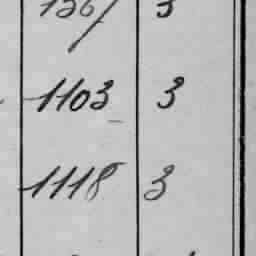 1103 3
1118 3